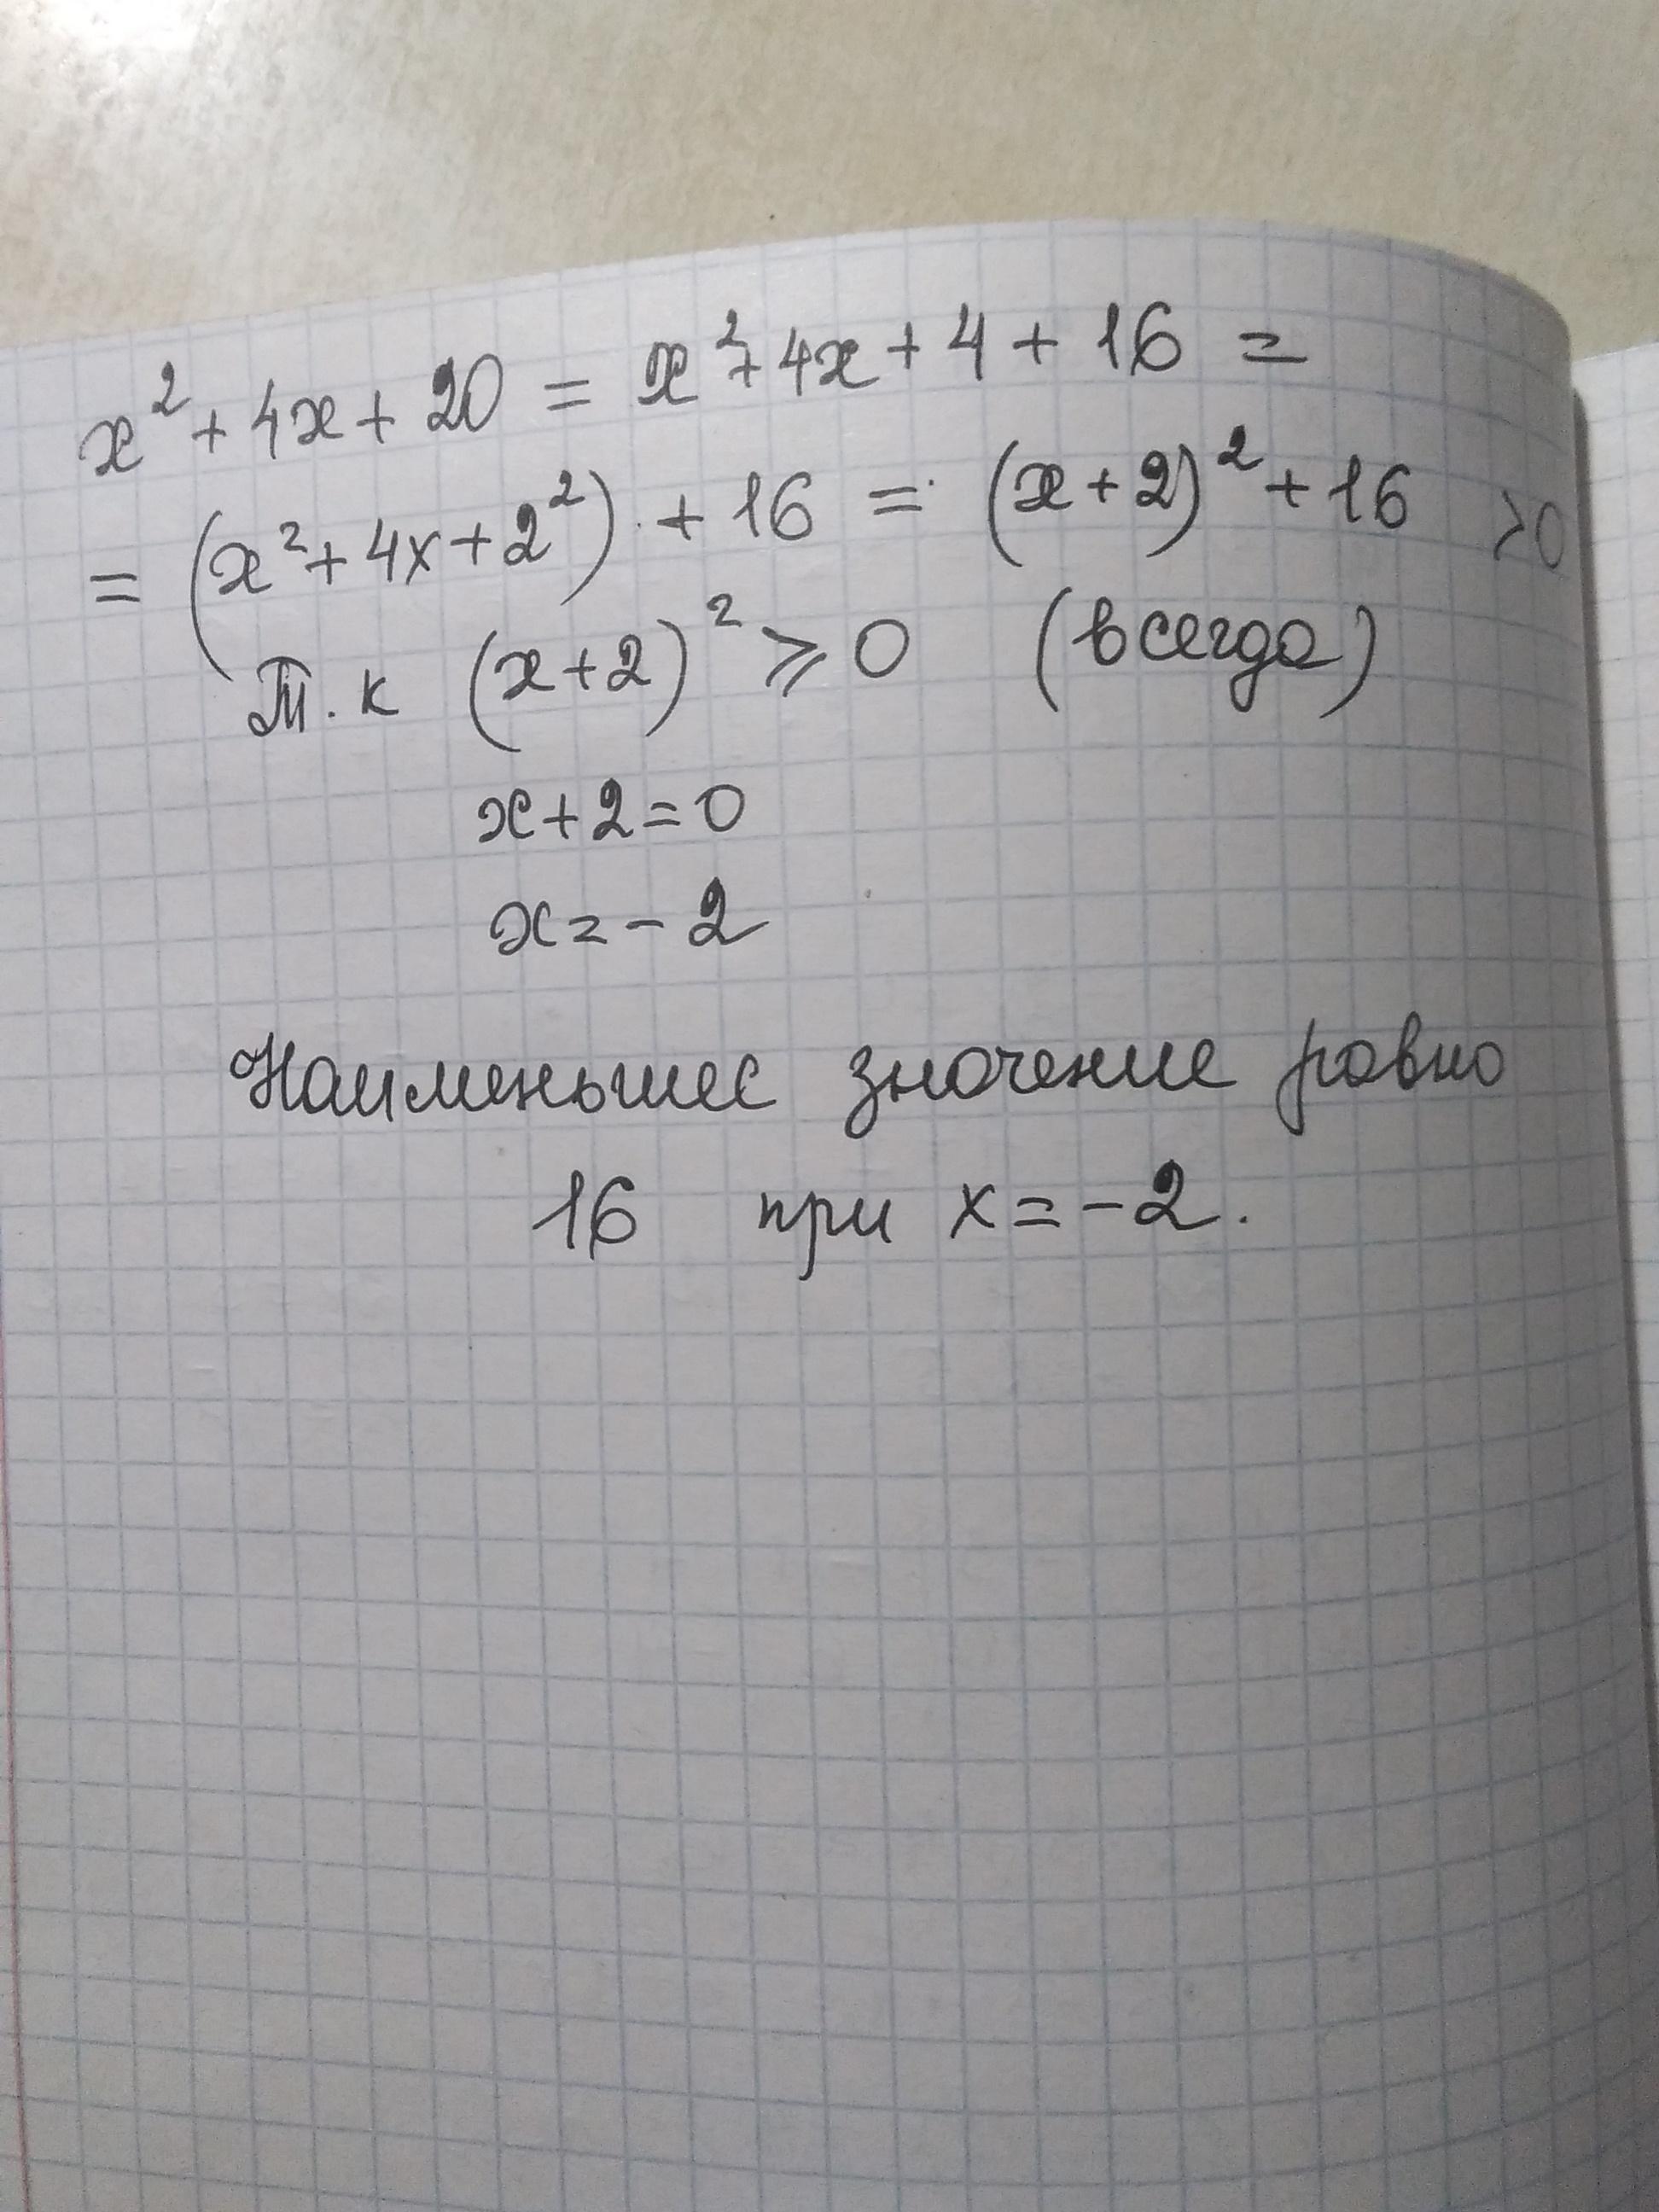 x² + 4x + 20 = x² + 4x + 4 + 16 =
= (x² + 4x + 2²) + 16 = (x + 2)² + 16 > 0
Т. к (x + 2)² ⩾ 0 (всегда)
x + 2 = 0
x = - 2
Наименьшее значение равно
16 при x = - 2.